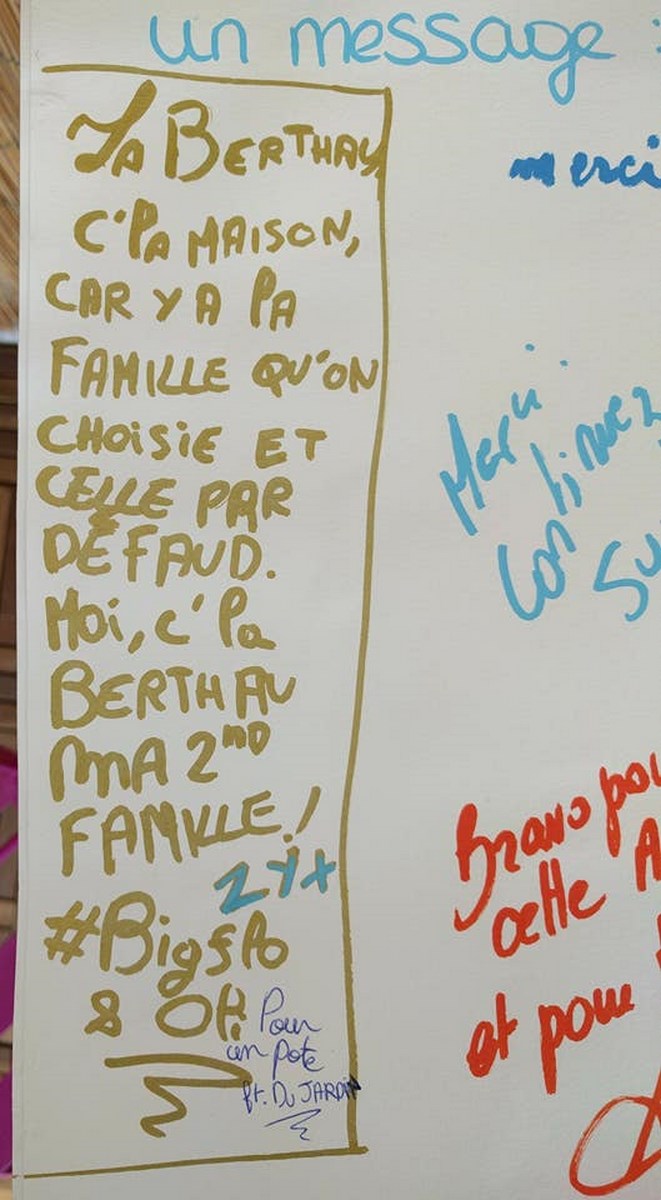 un message :
LA BERTHAU
C'LA MAISON,
CAR Y A LA
FAMILLE QU'ON
CHOISIE ET
CELLE PAR
DÉFAUD.
Moi, c'la
BERTHAU
MA 2ND
FAMILLE!
ZYX
#Bigflo
& Oli
Pour
un pote
ft. DUJARDIN
merci
Merci
Continuez
Su
Bravo pou
cette A
et pour